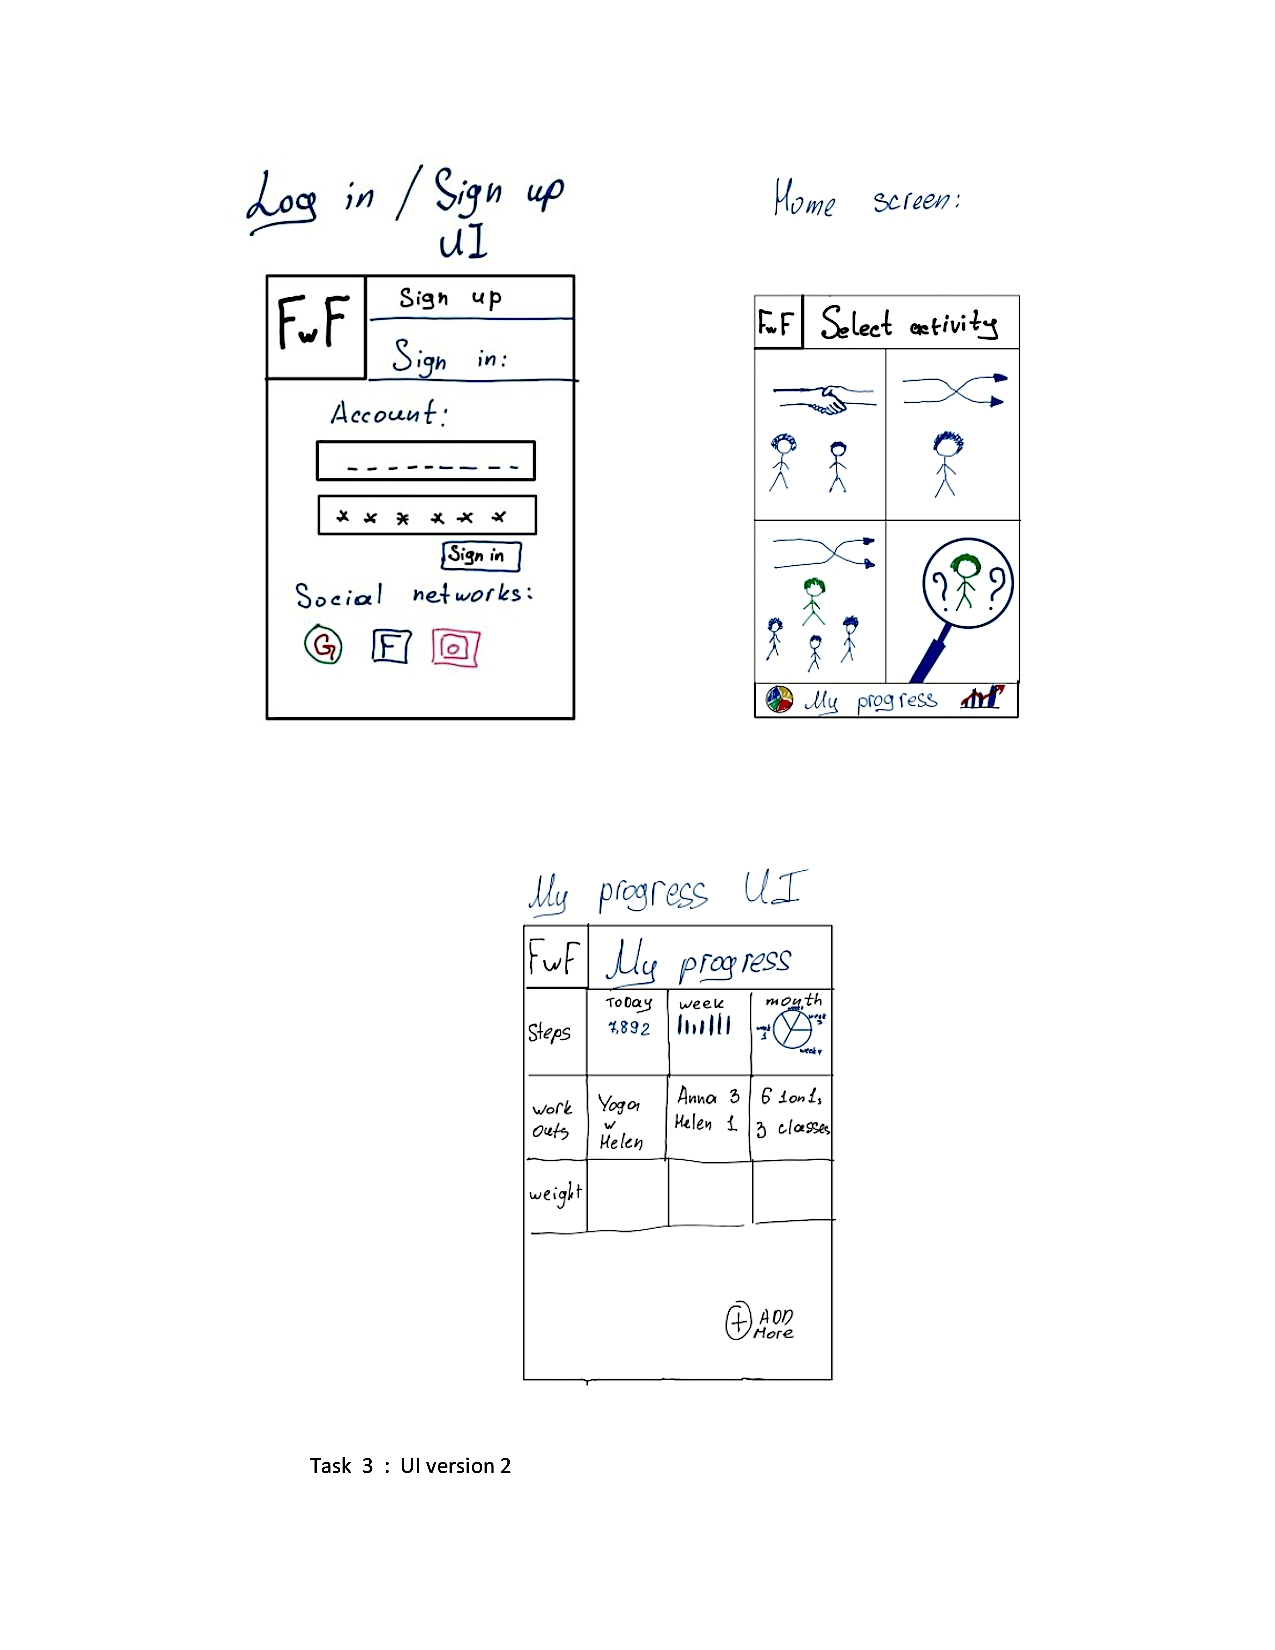 Log in / Sign up
UI
FwF
Sign up
Sign in:
Account:
_ _ _ _ _ _ _ _ _
* * * * * *
Sign in
Social networks:
G F
Home screen:
FwF Select activity
? ?
My progress
My progress UI
FwF My progress
Steps
Today
7,892
week
month
week
week 3
week 1
week 4
work outs
Yoga
w
Helen
Anna 3
Helen 1
6 1on1s
3 classes
weight
+ ADD
More
Task 3 : UI version 2